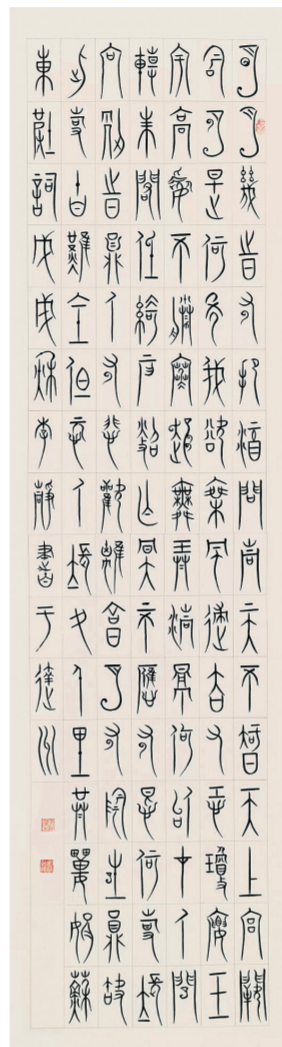 明月幾時有把酒問青天不知天上宮闕
今夕是何年我欲乘風歸去又恐瓊樓玉
宇高處不勝寒起舞弄清影何似在人間
轉朱閣低綺戶照無眠不應有恨何事長
向別時圓人有悲歡離合月有陰晴圓缺
此事古難全但願人長久千里共嬋娟蘇
東坡詞戊戌秋李靜書于達川